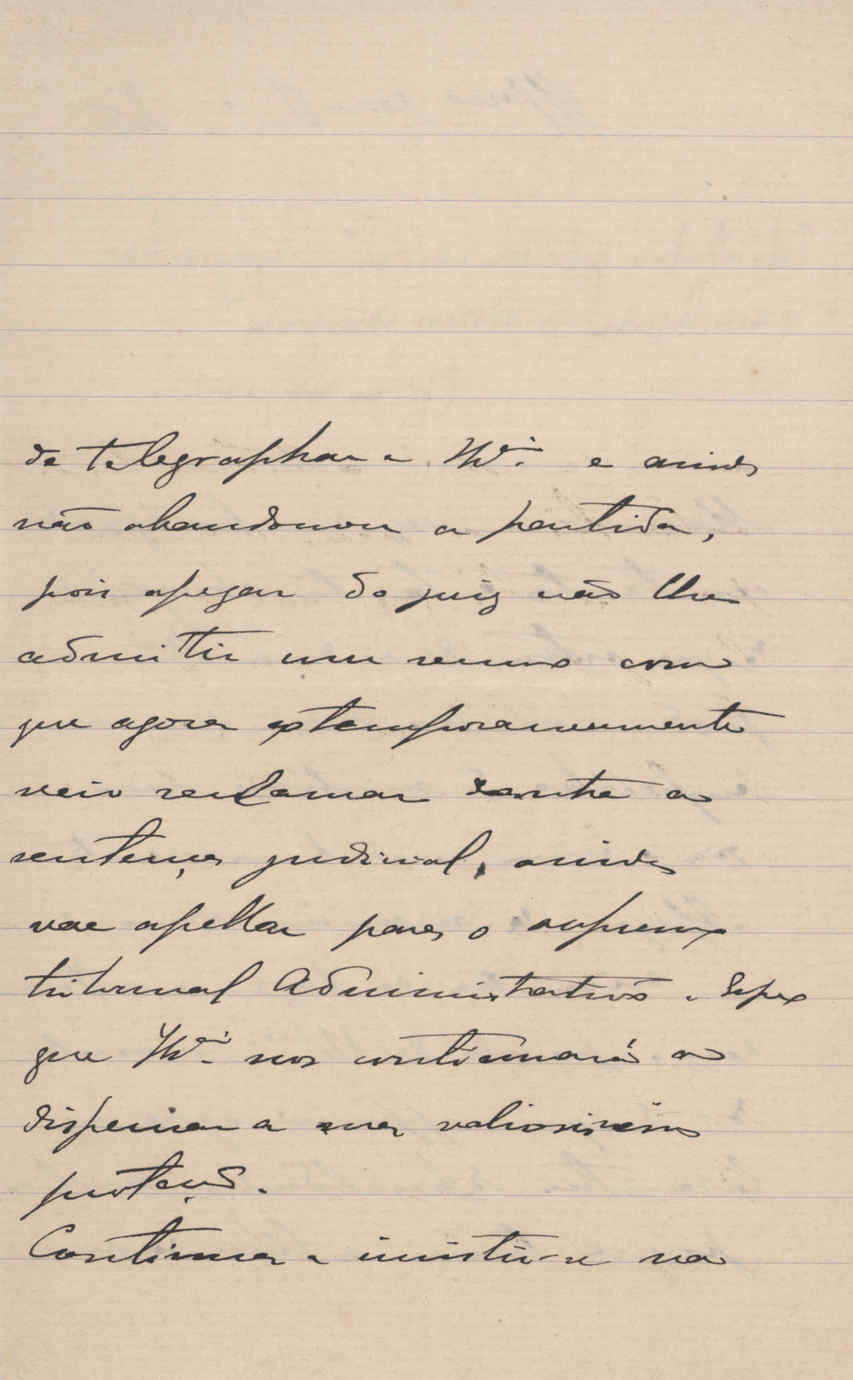 de telegraphar a V. e ainda
não abandonou a partida,
pois apezar do juiz não lhe
admittir um recurso com
que agora extemporaneamente
veio reclamar contra a
sentença judicial, ainda
vae apellar para o supremo
tribunal Administrativo e espero
que V. nos continuará a
dispensar a sua valiosissima
protecção.
Continua a insistir-se na